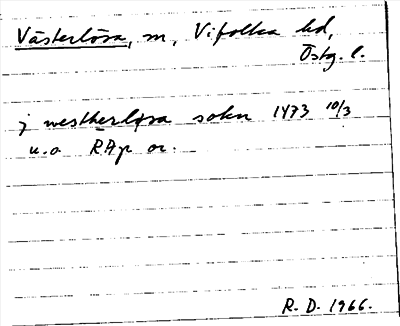 Västerlösa, sn, Vifolka hd,
Östg. l.
j westherløsa sokn 1473 10/3
u.o RAp or.
R. D. 1966.